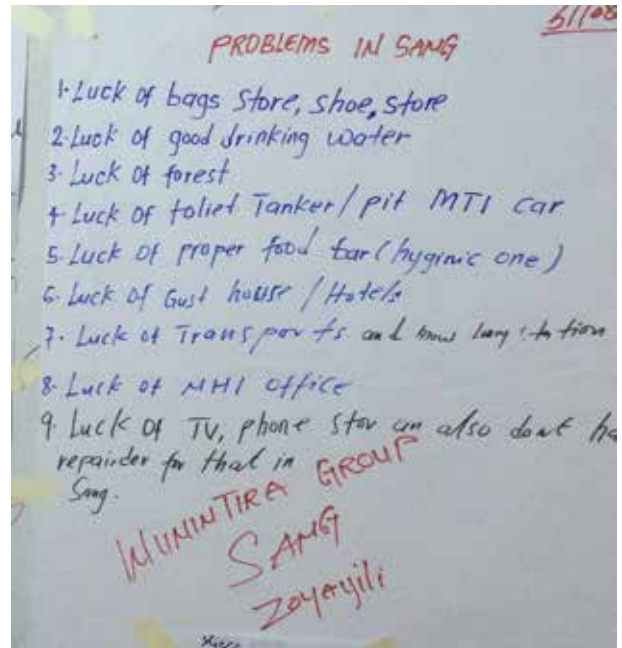 PROBLEMS IN SANG
1. Luck of bags store, shoe, store
2. Luck of good drinking water
3. Luck of forest
4 Luck of toliet Tanker/ pit MTI car
5. Luck of proper food bar (hyginic one)
6. Luck of Gust house / Hotels
7. Luck of Transports and
8. Luck of MHI office
9. Luck of TV, phone stor an also dont ha
repairder for that in
Sang.
WUNINTIRA GROUP
SANG
Zoyayili